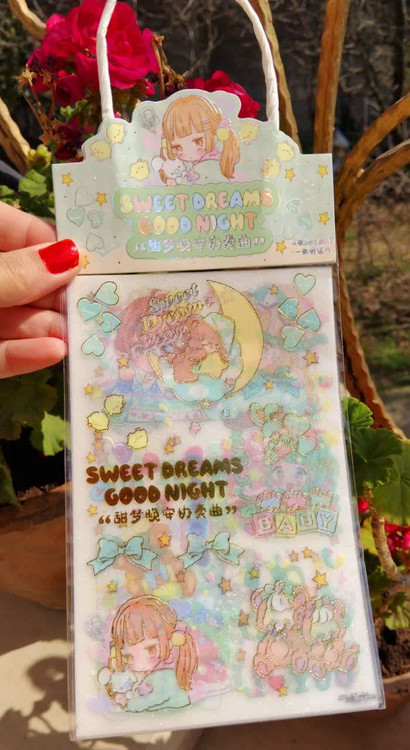 SWEET DREAMS
GOOD NIGHT
“甜梦晚安奶奏曲”
Sweet
Dream
SWEET DREAMS
GOOD NIGHT
“甜梦晚安奶奏曲”
BABY